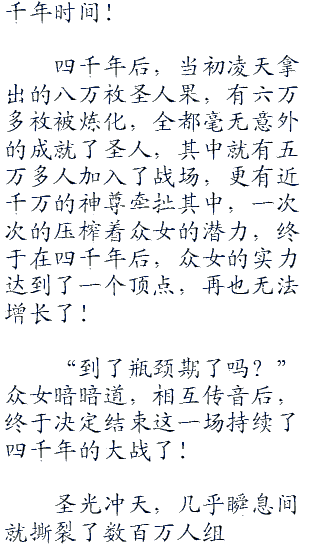 千年时间！
四千年后，当初凌天拿
出的八万枚圣人果，有六万
多枚被炼化，全都毫无意外
的成就了圣人，其中就有五
万多人加入了战场，更有近
千万的神尊牵扯其中，一次
次的压榨着众女的潜力，终
于在四千年后，众女的实力
达到了一个顶点，再也无法
增长了！
“到了瓶颈期了吗？”
众女暗暗道，相互传音后，
终于决定结束这一场持续了
四千年的大战了！
圣光冲天，几乎瞬息间
就撕裂了数百万人组